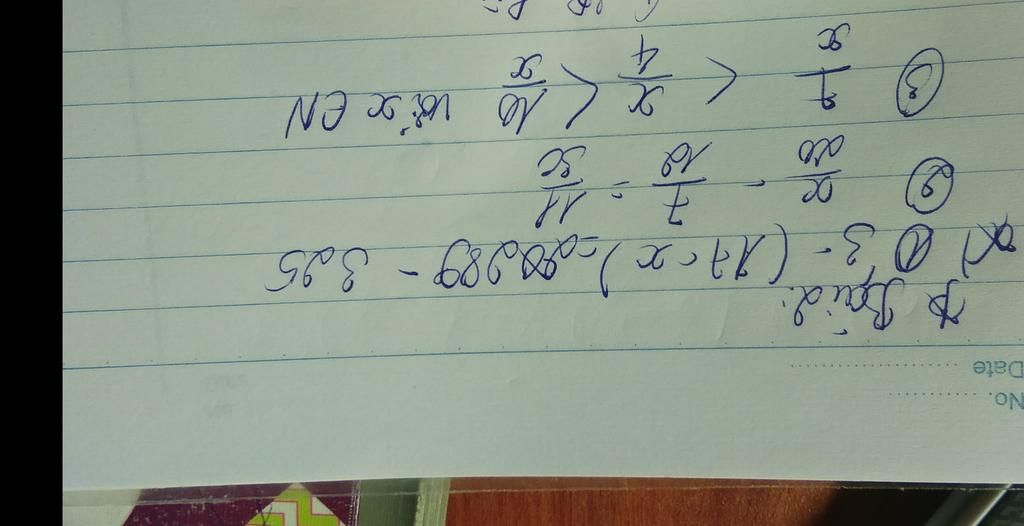 No.
Date
* Bài 2:
a) ① 3 - (17 - x) = 289 - 325
② x/20 - 7/10 = 11/30
③ 7/x < x/4 < 10/x với x ∈ N